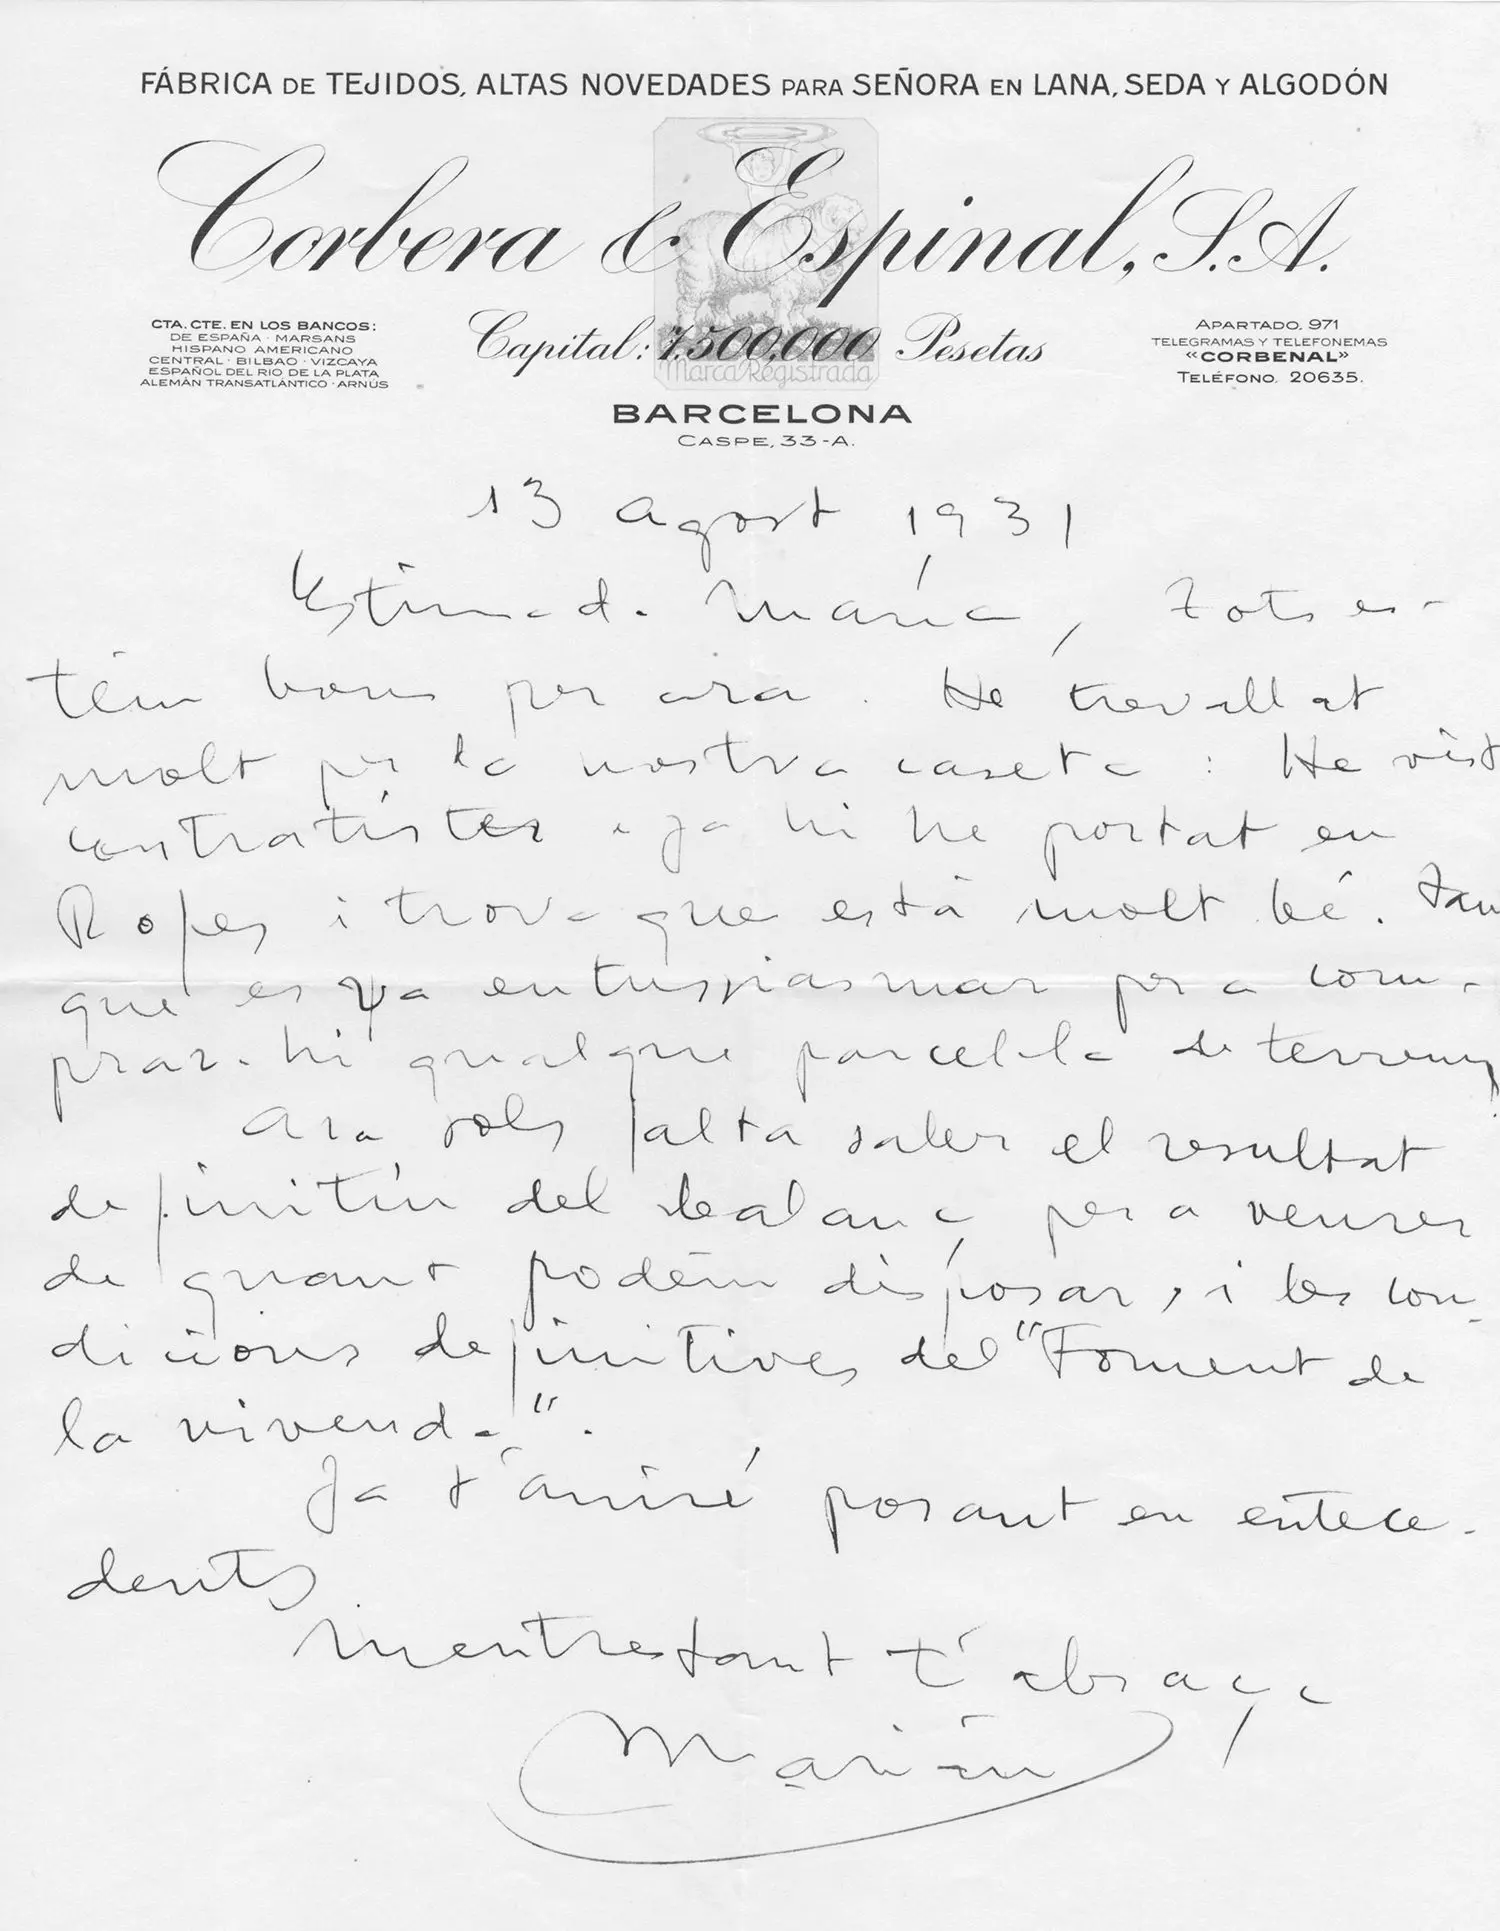 FÁBRICA DE TEJIDOS, ALTAS NOVEDADES PARA SEÑORA EN LANA, SEDA Y ALGODÓN
Corbera & Espinal, S.A.
CTA. CTE. EN LOS BANCOS:
DE ESPAÑA · MARSANS
HISPANO AMERICANO
CENTRAL · BILBAO · VIZCAYA
ESPAÑOL DEL RIO DE LA PLATA
ALEMÁN TRANSATLÁNTICO · ARNÚS
Capital: 7.500,000 Pesetas
Marca Registrada
APARTADO, 971
TELEGRAMAS Y TELEFONEMAS
«CORBENAL»
TELÉFONO, 20635.
BARCELONA
CASPE, 33-A.
13 agost 1931
Estimada María, Tots es-
tém bons per ara. He travallat
molt per la nostra caseta: He vist
contratistes i ja hi he portat en
Ropes i trova que está molt bé. Tan
que es va entussiasmar per a com-
prar-hi qualque parcel·la de terreny
Ara sols falta saber el resultat
definitíu del balanç per a veurer
de quant podém disposar, i les con-
dicions definitives del "Foment de
la vivenda".
Ja t'aniré posant en antece-
dents
Mentrestant t'abraça
Marián